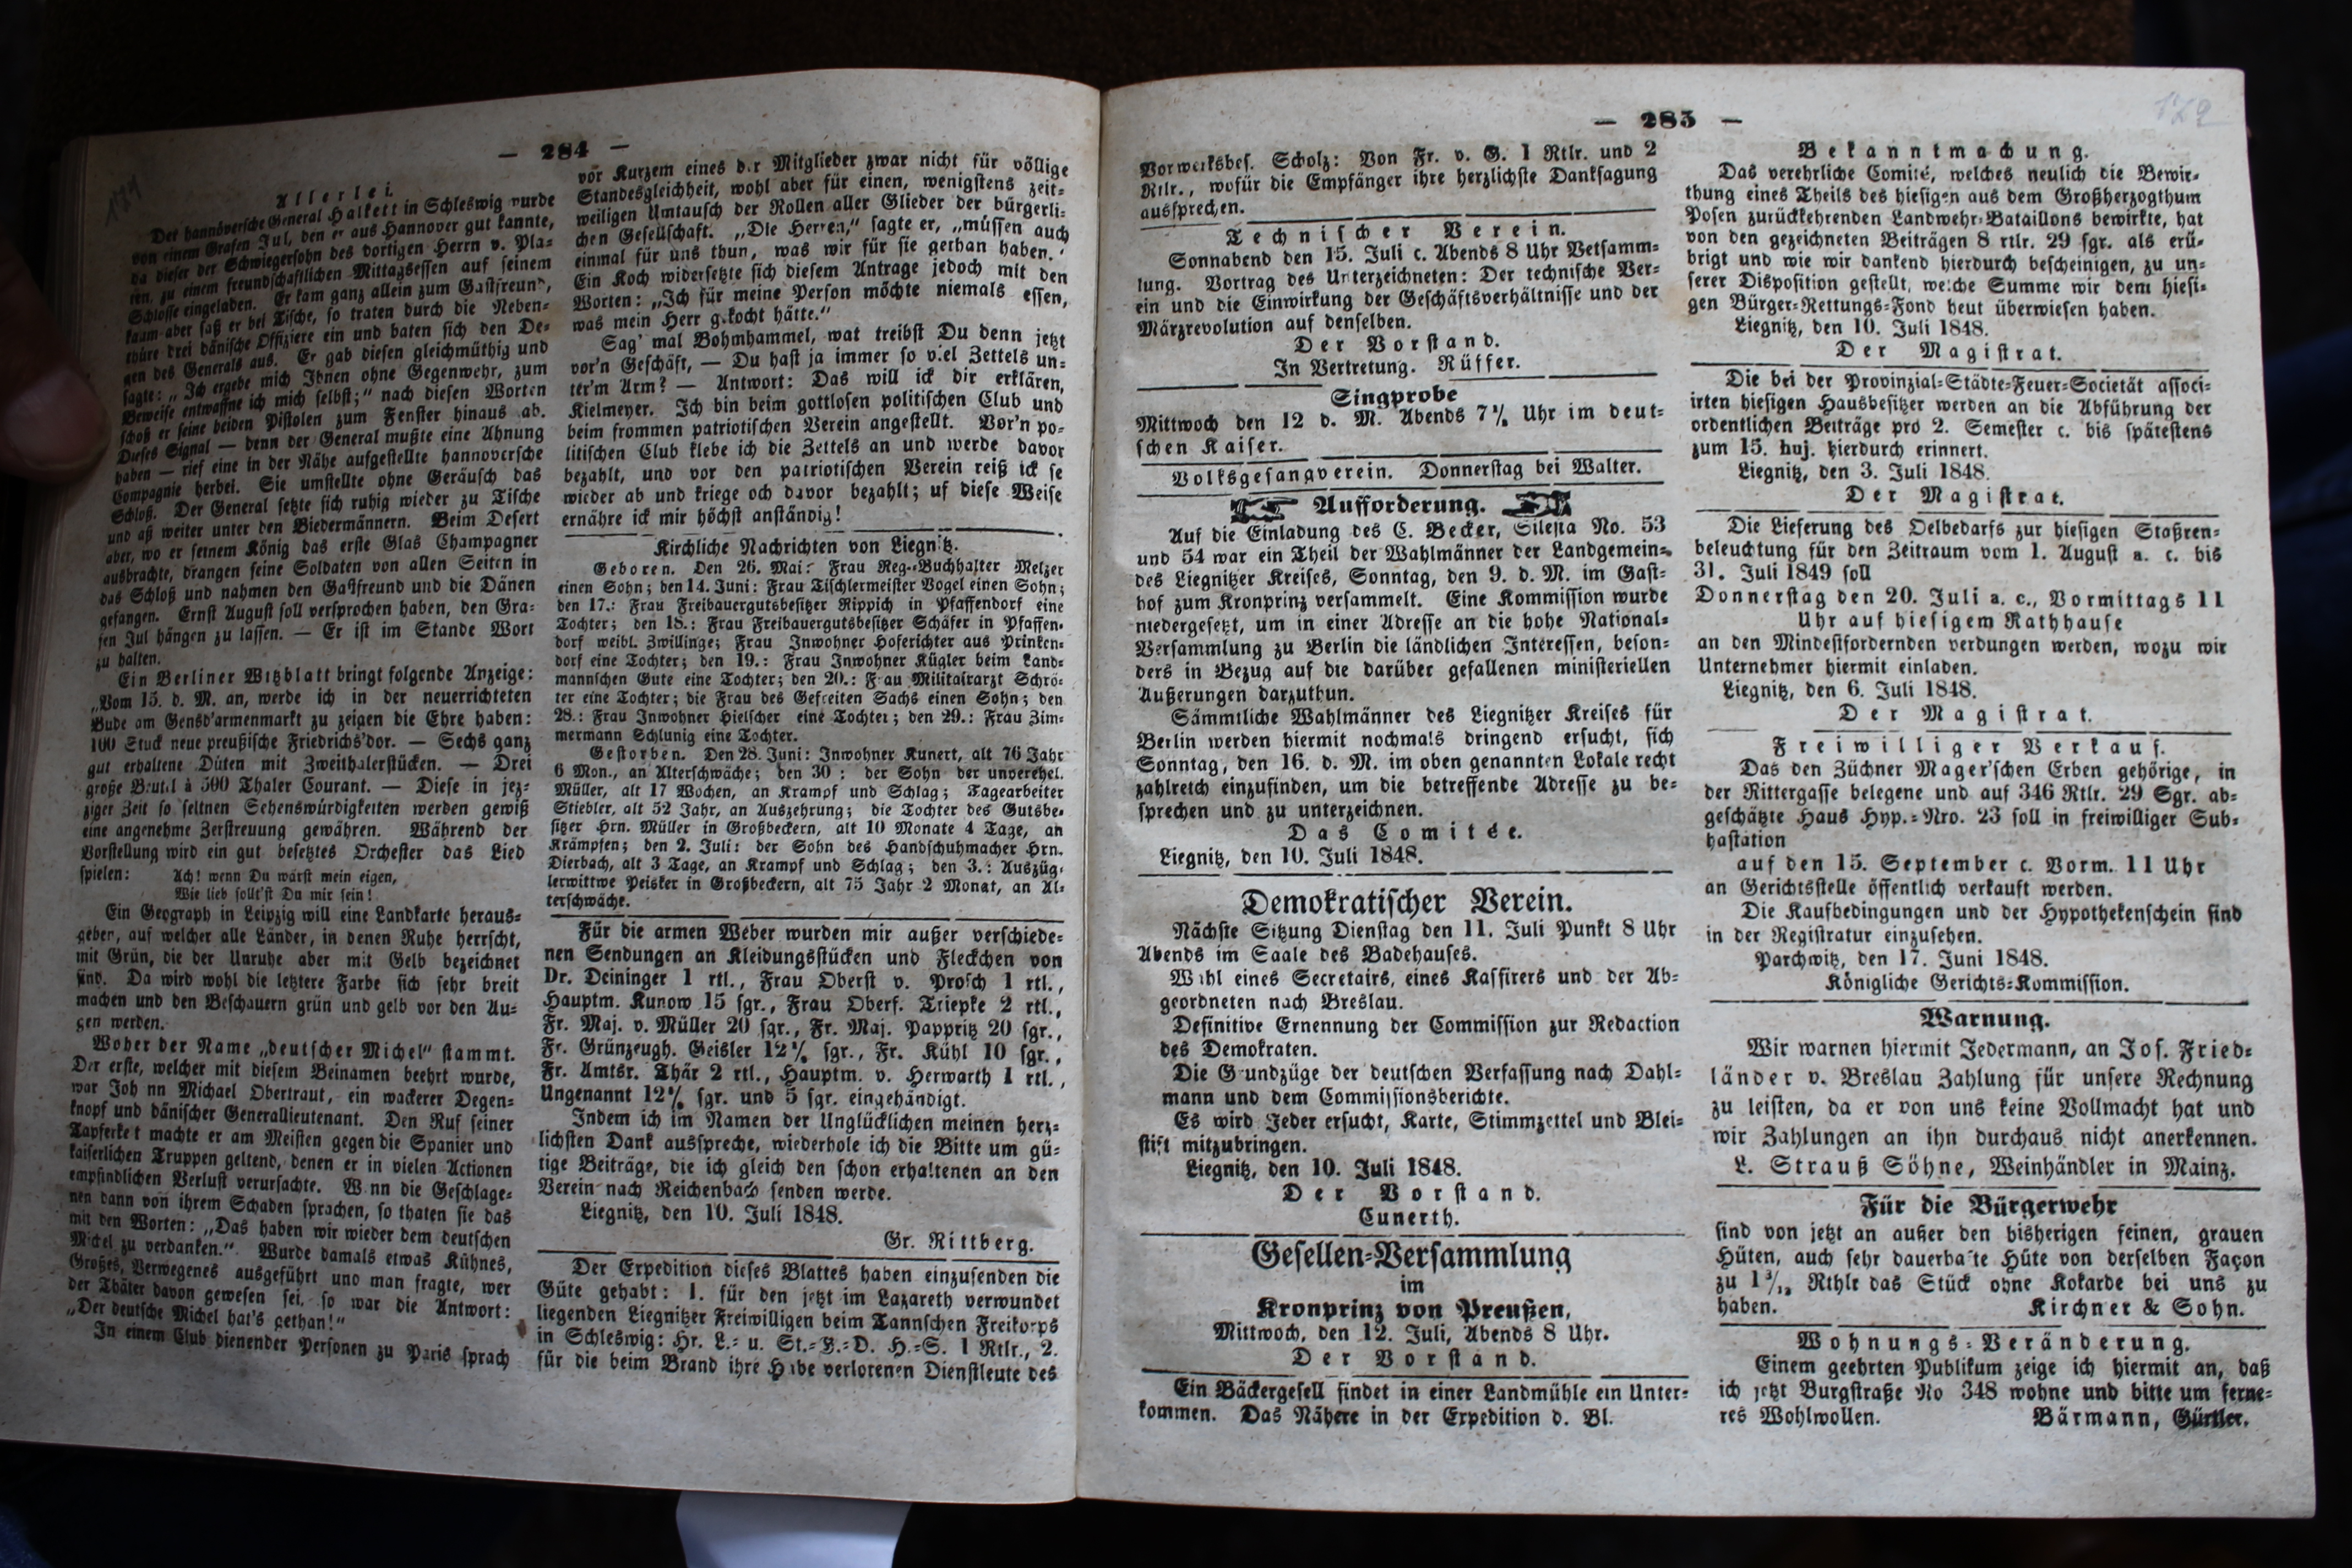 — 284 —
Allerlei.
Der hannöversche General Halkett in Schleswig wurde
von einem Grafen Jul, den er aus Hannover gut kannte,
da dieser der Schwiegersohn des dortigen Herrn v. Pla-
ten, zu einem freundschaftlichen Mittagsessen auf seinem
Schlosse eingeladen. Er kam ganz allein zum Gastfreund,
kaum aber saß er bei Tische, so traten durch die Neben-
thüre drei dänische Offiziere ein und baten sich den De-
gen des Generals aus. Er gab diesen gleichmüthig und
sagte: „Ich ergebe mich Ihnen ohne Gegenwehr, zum
Beweise entwaffne ich mich selbst;“ nach diesen Worten
schoß er seine beiden Pistolen zum Fenster hinaus ab.
Dieses Signal — denn der General mußte eine Ahnung
haben — rief eine in der Nähe aufgestellte hannoversche
Compagnie herbei. Sie umstellte ohne Geräusch das
Schloß. Der General setzte sich ruhig wieder zu Tische
und aß weiter unter den Biedermännern. Beim Desert
aber, wo er seinem König das erste Glas Champagner
ausbrachte, drangen seine Soldaten von allen Seiten in
das Schloß und nahmen den Gastfreund und die Dänen
gefangen. Ernst August soll versprochen haben, den Gra-
fen Jul hängen zu lassen. — Er ist im Stande Wort
zu halten.
Ein Berliner Witzblatt bringt folgende Anzeige:
„Vom 15. d. M. an, werde ich in der neuerrichteten
Bude am Gensd'armenmarkt zu zeigen die Ehre haben:
100 Stuck neue preußische Friedrichs'dor. — Sechs ganz
gut erhaltene Düten mit Zweithalerstücken. — Drei
große Beutel à 500 Thaler Courant. — Diese in jez-
ziger Zeit so seltnen Sehenswürdigkeiten werden gewiß
eine angenehme Zerstreuung gewähren. Während der
Vorstellung wird ein gut besetztes Orchester das Lied
spielen: Ach! wenn Du wärst mein eigen,
Wie lieb sollt'st Du mir sein!
Ein Geograph in Leipzig will eine Landkarte heraus-
geben, auf welcher alle Länder, in denen Ruhe herrscht,
mit Grün, die der Unruhe aber mit Gelb bezeichnet
sind. Da wird wohl die letztere Farbe sich sehr breit
machen und den Beschauern grün und gelb vor den Au-
gen werden.
Woher der Name „deutscher Michel“ stammt.
Der erste, welcher mit diesem Beinamen beehrt wurde,
war Joh nn Michael Obertraut, ein wackerer Degen-
knopf und dänischer Generallieutenant. Den Ruf seiner
Tapferke t machte er am Meisten gegen die Spanier und
kaiserlichen Truppen geltend, denen er in vielen Actionen
empfindlichen Verlust verursachte. W nn die Geschlage-
nen dann von ihrem Schaden sprachen, so thaten sie das
mit den Worten: „Das haben wir wieder dem deutschen
Michel zu verdanken.“ Wurde damals etwas Kühnes,
Großes, Verwegenes ausgeführt und man fragte, wer
der Thäter davon gewesen sei, so war die Antwort:
„Der deutsche Michel hat's gethan!“
In einem Club dienender Personen zu Paris sprach
vor Kurzem eines der Mitglieder zwar nicht für völlige
Standesgleichheit, wohl aber für einen, wenigstens zeit-
weiligen Umtausch der Rollen aller Glieder der bürgerli-
chen Gesellschaft. „Die Herren,“ sagte er, „müssen auch
einmal für uns thun, was wir für sie gethan haben.“
Ein Koch widersetzte sich diesem Antrage jedoch mit den
Worten: „Ich für meine Person möchte niemals essen,
was mein Herr gekocht hätte.“
Sag' mal Bohmhammel, wat treibst Du denn jetzt
vor'n Geschäft, — Du hast ja immer so viel Zettels un-
ter'm Arm? — Antwort: Das will ick dir erklären,
Kielmeyer. Ich bin beim gottlosen politischen Club und
beim frommen patriotischen Verein angestellt. Vor'n po-
litischen Club klebe ich die Zettels an und werde davor
bezahlt, und vor den patriotischen Verein reiß ick se
wieder ab und kriege och davor bezahlt; uf diese Weise
ernähre ick mir höchst anständig!
Kirchliche Nachrichten von Liegnitz.
Geboren. Den 26. Mai: Frau Reg.-Buchhalter Melzer
einen Sohn; den 14. Juni: Frau Tischlermeister Vogel einen Sohn;
den 17.: Frau Freibauergutsbesitzer Rippich in Pfaffendorf eine
Tochter; den 18.: Frau Freibauergutsbesitzer Schäfer in Pfaffen-
dorf weibl. Zwillinge; Frau Inwohner Hoferichter aus Prinken-
dorf eine Tochter; den 19.: Frau Inwohner Kügler beim Land-
mannschen Gute eine Tochter; den 20.: Frau Militairarzt Schrö-
ter eine Tochter; die Frau des Gefreiten Sachs einen Sohn; den
28.: Frau Inwohner Hielscher eine Tochter; den 29.: Frau Zim-
mermann Schlunig eine Tochter.
Gestorben. Den 28. Juni: Inwohner Kunert, alt 76 Jahr
6 Mon., an Alterschwäche; den 30: der Sohn der unverehel.
Müller, alt 17 Wochen, an Krampf und Schlag; Tagearbeiter
Stiebler, alt 52 Jahr, an Auszehrung; die Tochter des Gutsbe-
sitzer Hrn. Müller in Großbeckern, alt 10 Monate 4 Tage, an
Krämpfen; den 2. Juli: der Sohn des Handschuhmacher Hrn.
Dierbach, alt 3 Tage, an Krampf und Schlag; den 3.: Auszüg-
lerwittwe Peisker in Großbeckern, alt 75 Jahr 2 Monat, an Al-
terschwäche.
Für die armen Weber wurden mir außer verschiede-
nen Sendungen an Kleidungsstücken und Fleckchen von
Dr. Deininger 1 rtl., Frau Oberst v. Prosch 1 rtl.,
Hauptm. Kunow 15 sgr., Frau Oberf. Triepke 2 rtl.,
Fr. Maj. v. Müller 20 sgr., Fr. Maj. Pappritz 20 sgr.,
Fr. Grünzeugh. Geisler 12½ sgr., Fr. Kühl 10 sgr.,
Fr. Amtsr. Thär 2 rtl., Hauptm. v. Herwarth 1 rtl.,
Ungenannt 12½ sgr. und 5 sgr. eingehändigt.
Indem ich im Namen der Unglücklichen meinen herz-
lichsten Dank ausspreche, wiederhole ich die Bitte um gü-
tige Beiträge, die ich gleich den schon erhaltenen an den
Verein nach Reichenbach senden werde.
Liegnitz, den 10. Juli 1848.
Gr. Rittberg.
Der Expedition dieses Blattes haben einzusenden die
Güte gehabt: 1. für den jetzt im Lazareth verwundet
liegenden Liegnitzer Freiwilligen beim Tannschen Freikorps
in Schleswig: Hr. L.- u. St.-F.-D. H.-S. 1 Rtlr., 2.
für die beim Brand ihre Habe verlorenen Dienstleute des
— 285 —
Vorwerksbes. Scholz: Von Fr. v. G. 1 Rtlr. und 2
Rtlr., wofür die Empfänger ihre herzlichste Danksagung
aussprechen.
Technischer Verein.
Sonnabend den 15. Juli c. Abends 8 Uhr Versamm-
lung. Vortrag des Unterzeichneten: Der technische Ver-
ein und die Einwirkung der Geschäftsverhältnisse und der
Märzrevolution auf denselben.
Der Vorstand.
In Vertretung. Rüffer.
Singprobe
Mittwoch den 12 d. M. Abends 7½ Uhr im deut-
schen Kaiser.
Volksgesangverein. Donnerstag bei Walter.
Aufforderung.
Auf die Einladung des C. Becker, Silesia No. 53
und 54 war ein Theil der Wahlmänner der Landgemein-
des Liegnitzer Kreises, Sonntag, den 9. d. M. im Gast-
hof zum Kronprinz versammelt. Eine Kommission wurde
niedergesetzt, um in einer Adresse an die hohe National-
Versammlung zu Berlin die ländlichen Interessen, beson-
ders in Bezug auf die darüber gefallenen ministeriellen
Äußerungen darzuthun.
Sämmtliche Wahlmänner des Liegnitzer Kreises für
Berlin werden hiermit nochmals dringend ersucht, sich
Sonntag, den 16. d. M. im oben genannten Lokale recht
zahlreich einzufinden, um die betreffende Adresse zu be-
sprechen und zu unterzeichnen.
Das Comitée.
Liegnitz, den 10. Juli 1848.
Demokratischer Verein.
Nächste Sitzung Dienstag den 11. Juli Punkt 8 Uhr
Abends im Saale des Badehauses.
Wahl eines Secretairs, eines Kassirers und der Ab-
geordneten nach Breslau.
Definitive Ernennung der Commission zur Redaction
des Demokraten.
Die Grundzüge der deutschen Verfassung nach Dahl-
mann und dem Commissionsberichte.
Es wird Jeder ersucht, Karte, Stimmzettel und Blei-
stift mitzubringen.
Liegnitz, den 10. Juli 1848.
Der Vorstand.
Cunerth.
Gesellen-Versammlung
im
Kronprinz von Preußen,
Mittwoch, den 12. Juli, Abends 8 Uhr.
Der Vorstand.
Ein Bäckergesell findet in einer Landmühle ein Unter-
kommen. Das Nähere in der Expedition d. Bl.
Bekanntmachung.
Das verehrliche Comité, welches neulich die Bewir-
thung eines Theils des hiesigen aus dem Großherzogthum
Posen zurückkehrenden Landwehr-Bataillons bewirkte, hat
von den gezeichneten Beiträgen 8 rtlr. 29 sgr. als erü-
brigt und wie wir dankend hierdurch bescheinigen, zu un-
serer Disposition gestellt, welche Summe wir dem hiesi-
gen Bürger-Rettungs-Fond heut überwiesen haben.
Liegnitz, den 10. Juli 1848.
Der Magistrat.
Die bei der Provinzial-Städte-Feuer-Societät associ-
irten hiesigen Hausbesitzer werden an die Abführung der
ordentlichen Beiträge pro 2. Semester c. bis spätestens
zum 15. huj. hierdurch erinnert.
Liegnitz, den 3. Juli 1848.
Der Magistrat.
Die Lieferung des Oelbedarfs zur hiesigen Staßren-
beleuchtung für den Zeitraum vom 1. August a. c. bis
31. Juli 1849 soll
Donnerstag den 20. Juli a. c., Vormittags 11
Uhr auf hiesigem Rathhause
an den Mindestfordernden verdungen werden, wozu wir
Unternehmer hiermit einladen.
Liegnitz, den 6. Juli 1848.
Der Magistrat.
Freiwilliger Verkauf.
Das den Züchner Mager'schen Erben gehörige, in
der Rittergasse belegene und auf 346 Rtlr. 29 Sgr. ab-
geschätzte Haus Hyp.-Nro. 23 soll in freiwilliger Sub-
hastation
auf den 15. September c. Vorm. 11 Uhr
an Gerichtsstelle öffentlich verkauft werden.
Die Kaufbedingungen und der Hypothekenschein sind
in der Registratur einzusehen.
Parchwitz, den 17. Juni 1848.
Königliche Gerichts-Kommission.
Warnung.
Wir warnen hiermit Jedermann, an Jos. Fried-
länder v. Breslau Zahlung für unsere Rechnung
zu leisten, da er von uns keine Vollmacht hat und
wir Zahlungen an ihn durchaus nicht anerkennen.
L. Strauß Söhne, Weinhändler in Mainz.
Für die Bürgerwehr
sind von jetzt an außer den bisherigen feinen, grauen
Hüten, auch sehr dauerhafte Hüte von derselben Façon
zu 1 Rthlr das Stück ohne Kokarde bei uns zu
haben. Kirchner & Sohn.
Wohnungs-Veränderung.
Einem geehrten Publikum zeige ich hiermit an, daß
ich jetzt Burgstraße No 348 wohne und bitte um ferne-
res Wohlwollen. Bärmann, Gürtler.